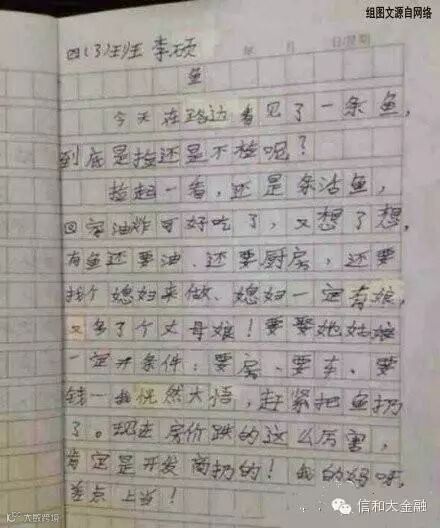 组图文源自网络
四(3)班 李硕
年 月 日 星期
鱼
今天在路边看见了一条鱼,
到底是捡还是不捡呢?
捡起一看,还是条活鱼,
回家油炸可好吃了,又想了想,
有鱼还要油、还要厨房,还要
找个媳妇来做、媳妇一定有娘,
又多了个丈母娘!要娶她姑娘
一定开条件:要房、要车、要
钱一我恍然大悟,赶紧把鱼扔
了。现在房价跌的这么厉害,
肯定是开发商扔的!我的妈呀,
差点上当!
大数跨境
信和大金融